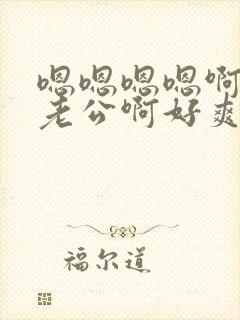 嗯嗯嗯嗯啊
老公啊好爽
福尔道